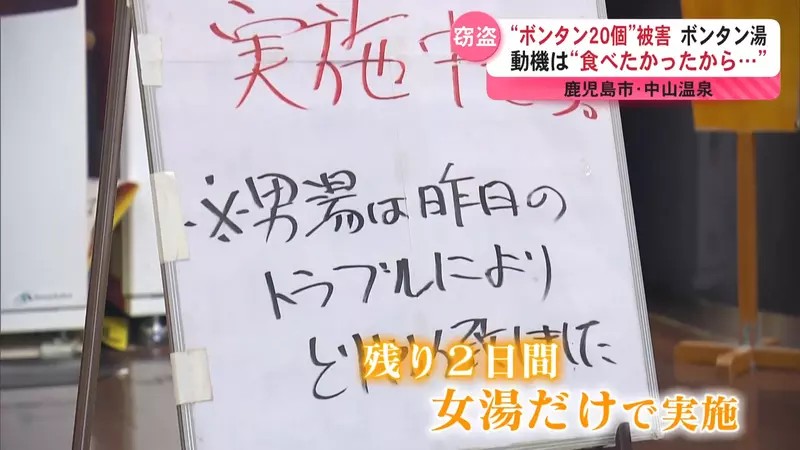 窃盗
“ボンタン20個”被害 ボンタン湯
動機は“食べたかったから…”
鹿児島市・中山温泉
実施中です。
※男湯は昨日の
トラブルにより
残り2日間
女湯だけで実施